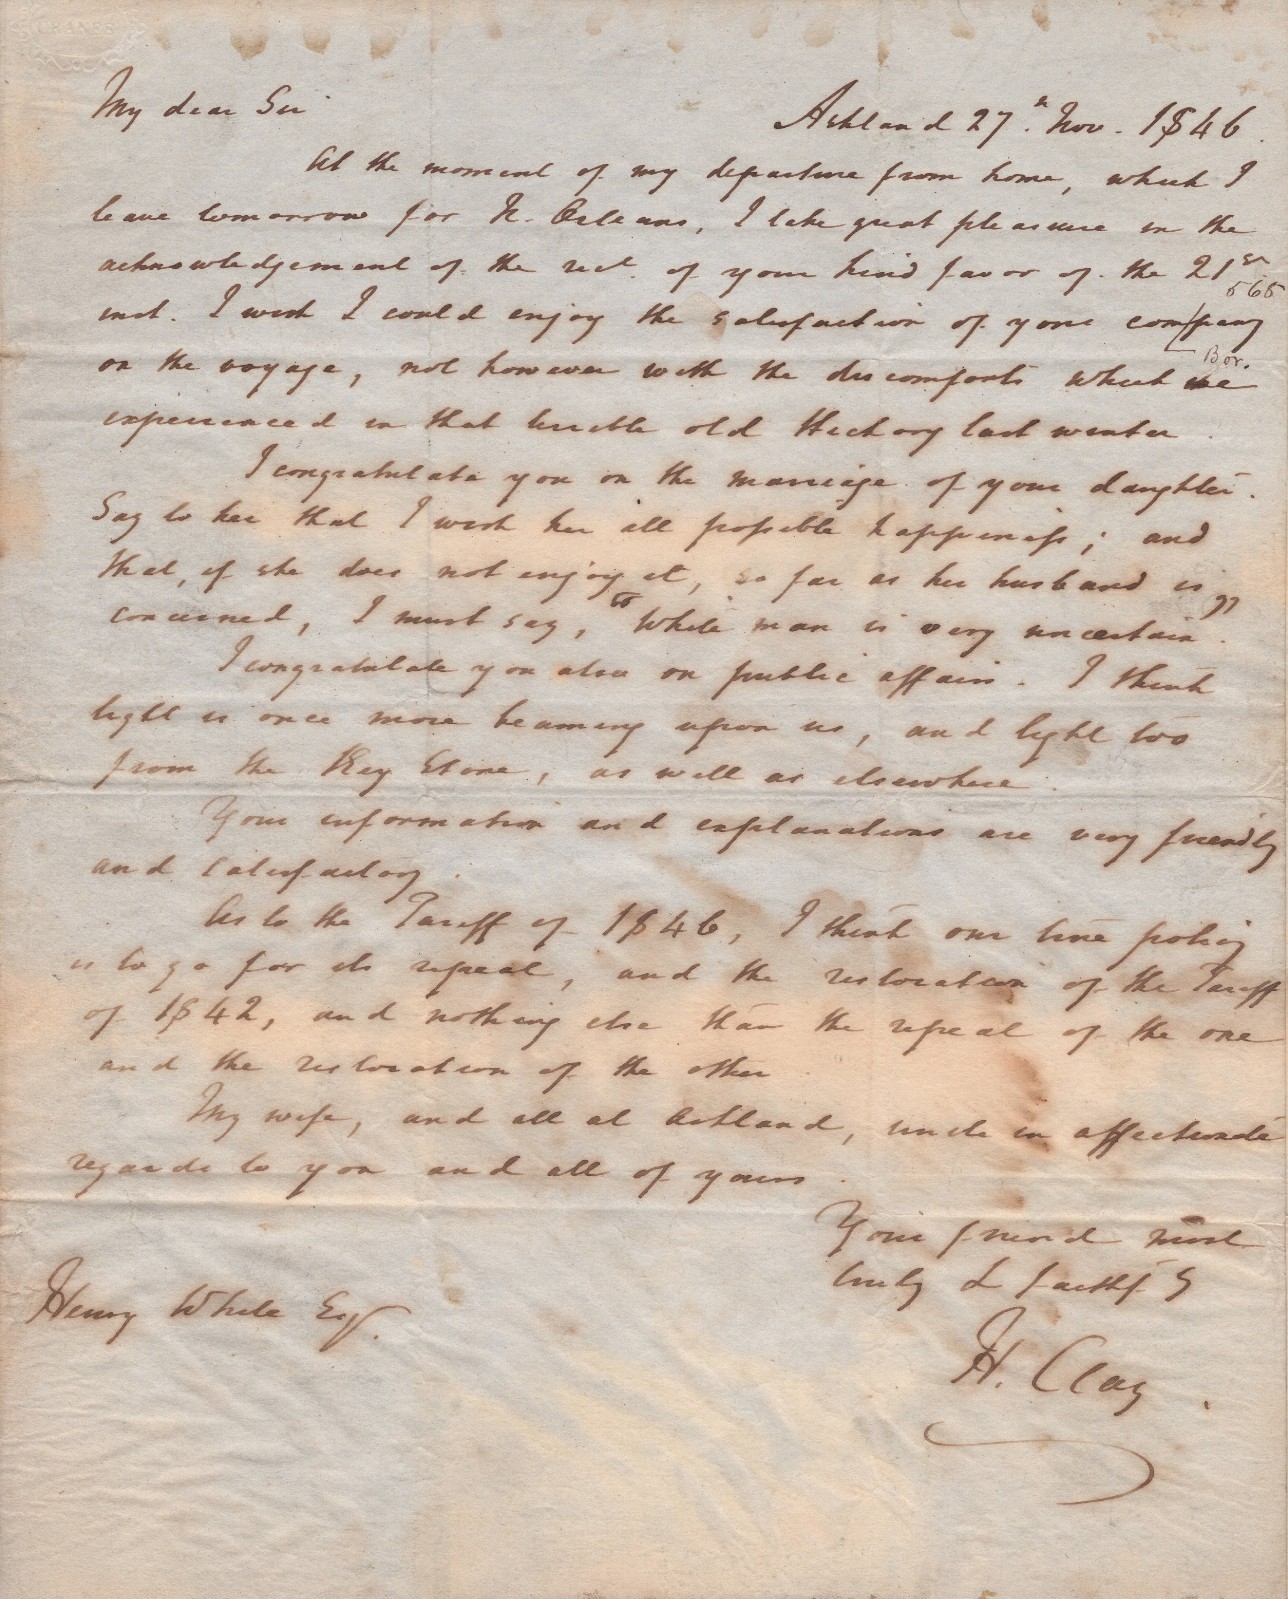 My dear Sir
Ashland 27th. Nov. 1846.
At the moment of my departure from home, which I
leave tomorrow for N. Orleans, I take great pleasure in the
acknowledgement of the rect. of your kind favor of the 21st
565
inst. I wish I could enjoy the satisfaction of your company
Bor.
on the voyage, not however with the discomforts which we
experienced in that terrible old Hickory last winter.
I congratulate you on the marriage of your daughter.
Say to her that I wish her all possible happiness; and
that, if she does not enjoy it, so far as her husband is
concerned, I must say, "White man is very uncertain."
I congratulate you also on public affairs. I think
light is once more beaming upon us, and light too
from the Key Stone, as well as elsewhere.
Your information and explanations are very friendly
and satisfactory.
As to the Tariff of 1846, I think our true policy
is to go for its repeal, and the restoration of the Tariff
of 1842, and nothing else than the repeal of the one
and the restoration of the other.
My wife, and all at Ashland, unite in affectionate
regards to you and all of yours.
Your friend most
truly & faithfy
Henry White Esqr.
H. Clay.